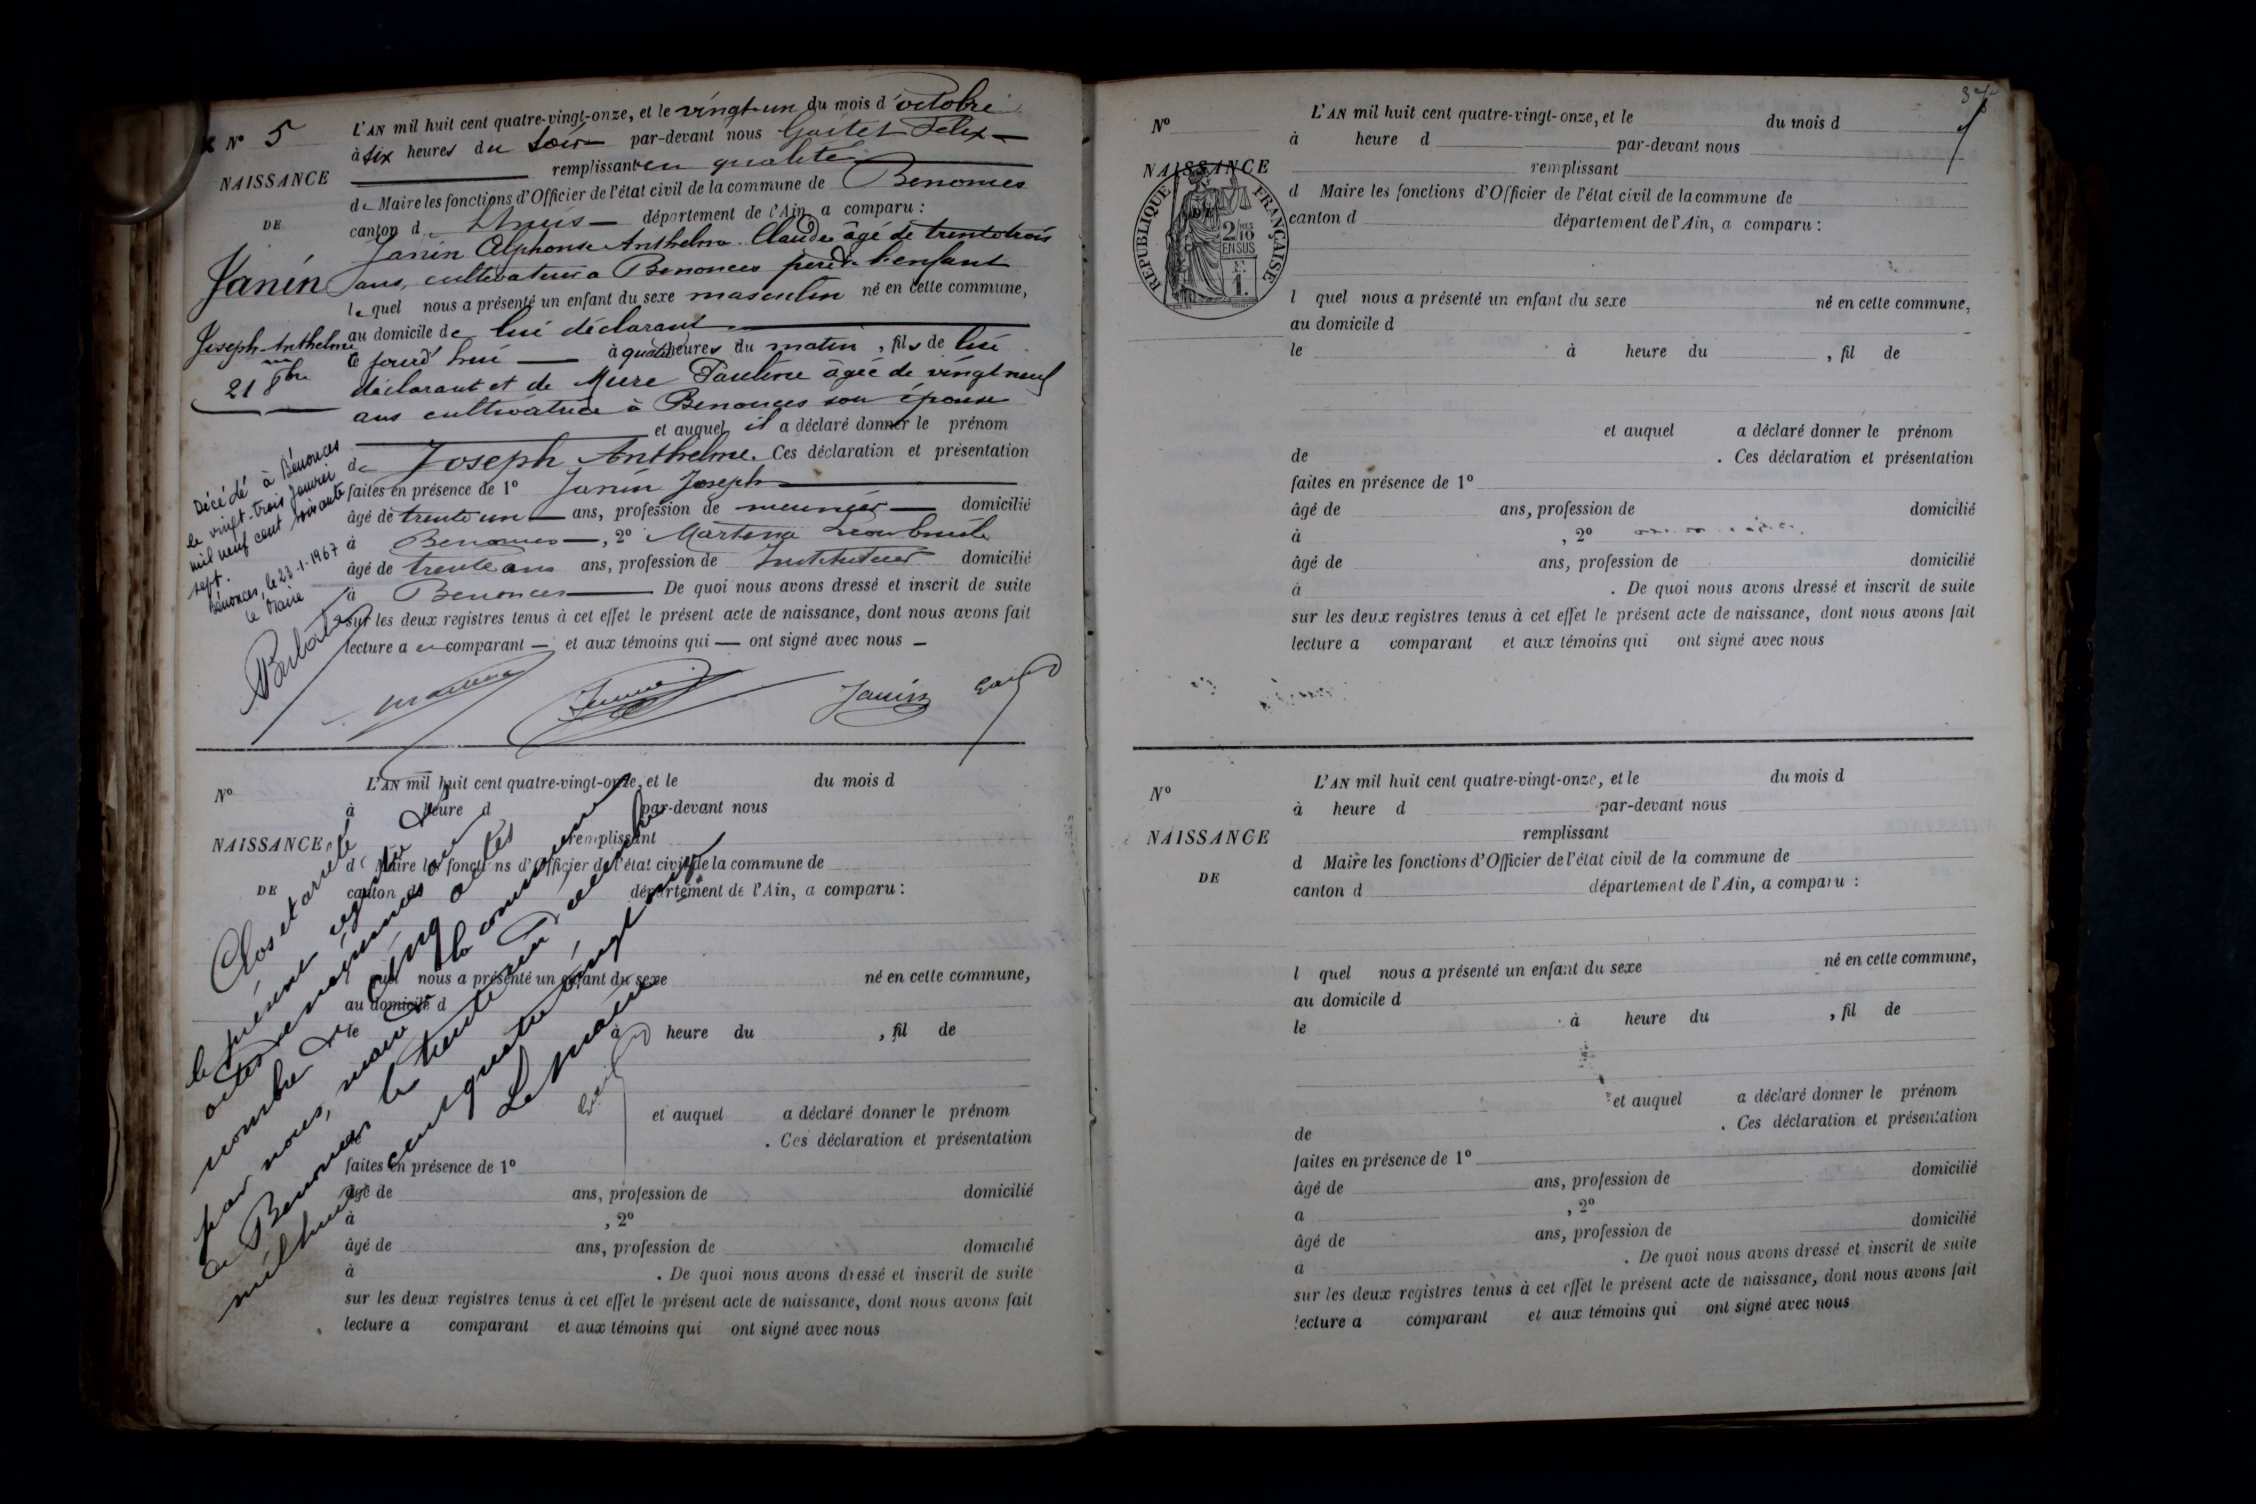 N° 5
NAISSANCE
DE
Janin
Joseph Anthelme
21 8bre
L'AN mil huit cent quatre-vingt-onze, et le vingt-un du mois d'octobre
à six heures du soir par-devant nous Gaitet Félix
remplissant en qualité
de Maire les fonctions d'Officier de l'état civil de la commune de Benonces
canton d Lhuis département de l'Ain, a comparu :
Janin Alphonse Anthelme Claude âgé de trente trois
ans, cultivateur a Benonces père de l'enfant
lequel nous a présenté un enfant du sexe masculin né en cette commune,
au domicile de lui déclarant
ce jourd'hui à quatre heures du matin, fils de lui
déclarant et de Mure Pauline âgée de vingt neuf
ans cultivatrice à Benonces son épouse
et auquel il a déclaré donner le prénom
de Joseph Anthelme. Ces déclaration et présentation
faites en présence de 1° Janin Joseph
âgé de trente un ans, profession de meunier domicilié
à Benonces, 2° Martina
âgé de trente ans ans, profession de Instituteur domicilié
à Benonces De quoi nous avons dressé et inscrit de suite
sur les deux registres tenus à cet effet le présent acte de naissance, dont nous avons fait
lecture a u comparant et aux témoins qui ont signé avec nous
Décédé à Bénonces
le vingt-trois Janvier
mil neuf cent soixante
sept.
Bénonces, le 23-1-1967
le Maire
Martina
Janin
Gaitet
N°
NAISSANCE
DE
L'AN mil huit cent quatre-vingt-onze, et le du mois d
à heure d par-devant nous
remplissant
d Maire les fonctions d'Officier de l'état civil de la commune de
canton d département de l'Ain, a comparu :
l quel nous a présenté un enfant du sexe né en cette commune,
au domicile d
le à heure du , fil de
et auquel a déclaré donner le prénom
de . Ces déclaration et présentation
faites en présence de 1°
âgé de ans, profession de domicilié
à , 2°
âgé de ans, profession de domicilié
à . De quoi nous avons dressé et inscrit de suite
sur les deux registres tenus à cet effet le présent acte de naissance, dont nous avons fait
lecture a comparant et aux témoins qui ont signé avec nous
Clos et arrêté
le présent registre de
actes de naissances au
nombre de cinq actes
par nous, maire de la commune
de Benonces le trente un Décembre
mil huit cent quatre vingt onze
Le Maire
37
N°
NAISSANCE
DE
REPUBLIQUE FRANÇAISE
2/10
EN SUS
1.
L'AN mil huit cent quatre-vingt-onze, et le du mois d
à heure d par-devant nous
remplissant
d Maire les fonctions d'Officier de l'état civil de la commune de
canton d département de l'Ain, a comparu :
l quel nous a présenté un enfant du sexe né en cette commune,
au domicile d
le à heure du , fil de
et auquel a déclaré donner le prénom
de . Ces déclaration et présentation
faites en présence de 1°
âgé de ans, profession de domicilié
à , 2°
âgé de ans, profession de domicilié
à . De quoi nous avons dressé et inscrit de suite
sur les deux registres tenus à cet effet le présent acte de naissance, dont nous avons fait
lecture a comparant et aux témoins qui ont signé avec nous
N°
NAISSANCE
DE
L'AN mil huit cent quatre-vingt-onze, et le du mois d
à heure d par-devant nous
remplissant
d Maire les fonctions d'Officier de l'état civil de la commune de
canton d département de l'Ain, a comparu :
l quel nous a présenté un enfant du sexe né en cette commune,
au domicile d
le à heure du , fil de
et auquel a déclaré donner le prénom
de . Ces déclaration et présentation
faites en présence de 1°
âgé de ans, profession de domicilié
a , 2°
âgé de ans, profession de domicilié
à . De quoi nous avons dressé et inscrit de suite
sur les deux registres tenus à cet effet le présent acte de naissance, dont nous avons fait
lecture a comparant et aux témoins qui ont signé avec nous